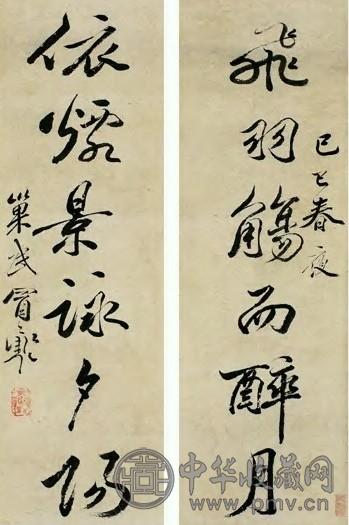 飛羽觴而醉月
己巳春夜
依煙景詠夕陽
巢民冒襄
中华收藏网
www.pmv.cn